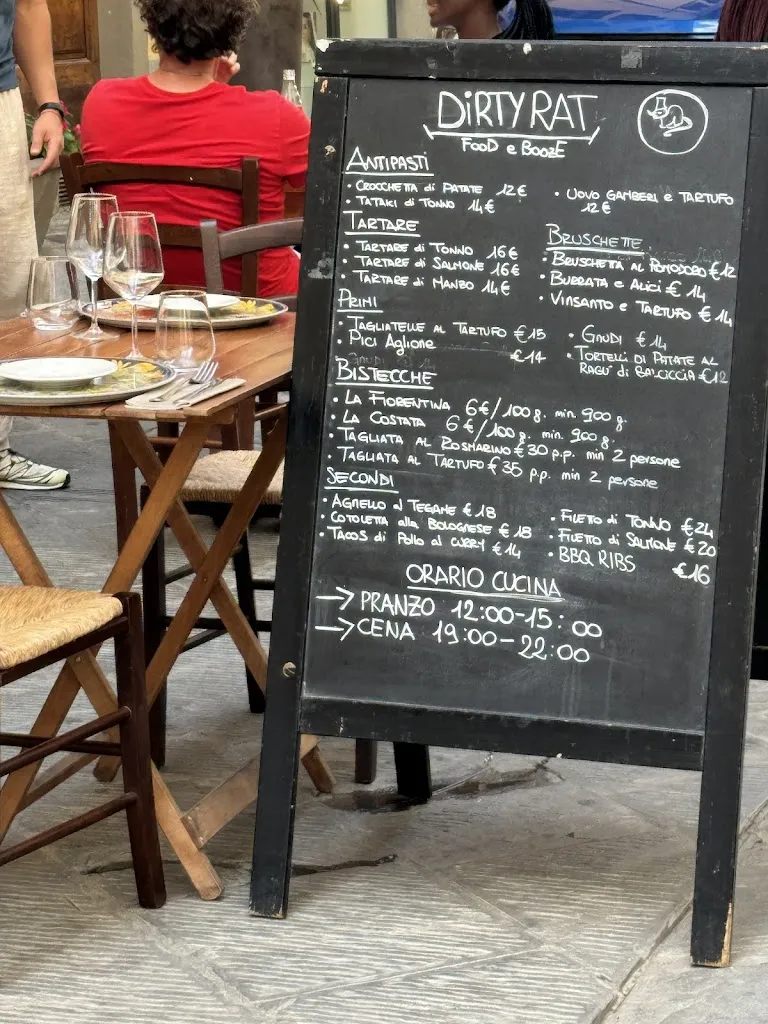 DiRTY RAT
FooD e BoozE
ANTiPASTi
• CROCCHETTA di PATATE 12€
• TATAKi di TONNO 14€
• UOVO GAMBERi e TARTUFO
12€
TARTARE
• TARTARE di TONNO 16€
• TARTARE di SALMONE 16€
• TARTARE di MANZO 14€
BRUSCHETTE
• BRUSCHETTA AL POMODORO €12
• BURRATA e ALiCi € 14
• ViNSANTO e TARTUFO € 14
PRiMi
• TAGLiATELLE AL TARTUFO €15
• PiCi AGLiONE €14
• GNUDi €14
• TORTELLi Di PATATE AL
RAGU' di SALCiCCiA €12
BiSTECCHE
• LA FiORENTiNA 6€/100g. min. 900 g.
• LA COSTATA 6€/100g. min. 900 g.
• TAGLiATA AL ROSMARiNO € 30 p.p. min 2 persone
• TAGLiATA AL TARTUFO € 35 p.p. min 2 persone
SECONDi
• AGNELLO AL TEGAME € 18
• COTOLETTA alla BOLOGNESE € 18
• TACOS di POLLO AL CURRY € 14
• FiLETTO di TONNO €24
• FiLETTO di SALMONE € 20
• BBQ RiBS €16
ORARiO CUCiNA
→ PRANZO 12:00-15:00
→ CENA 19:00-22:00